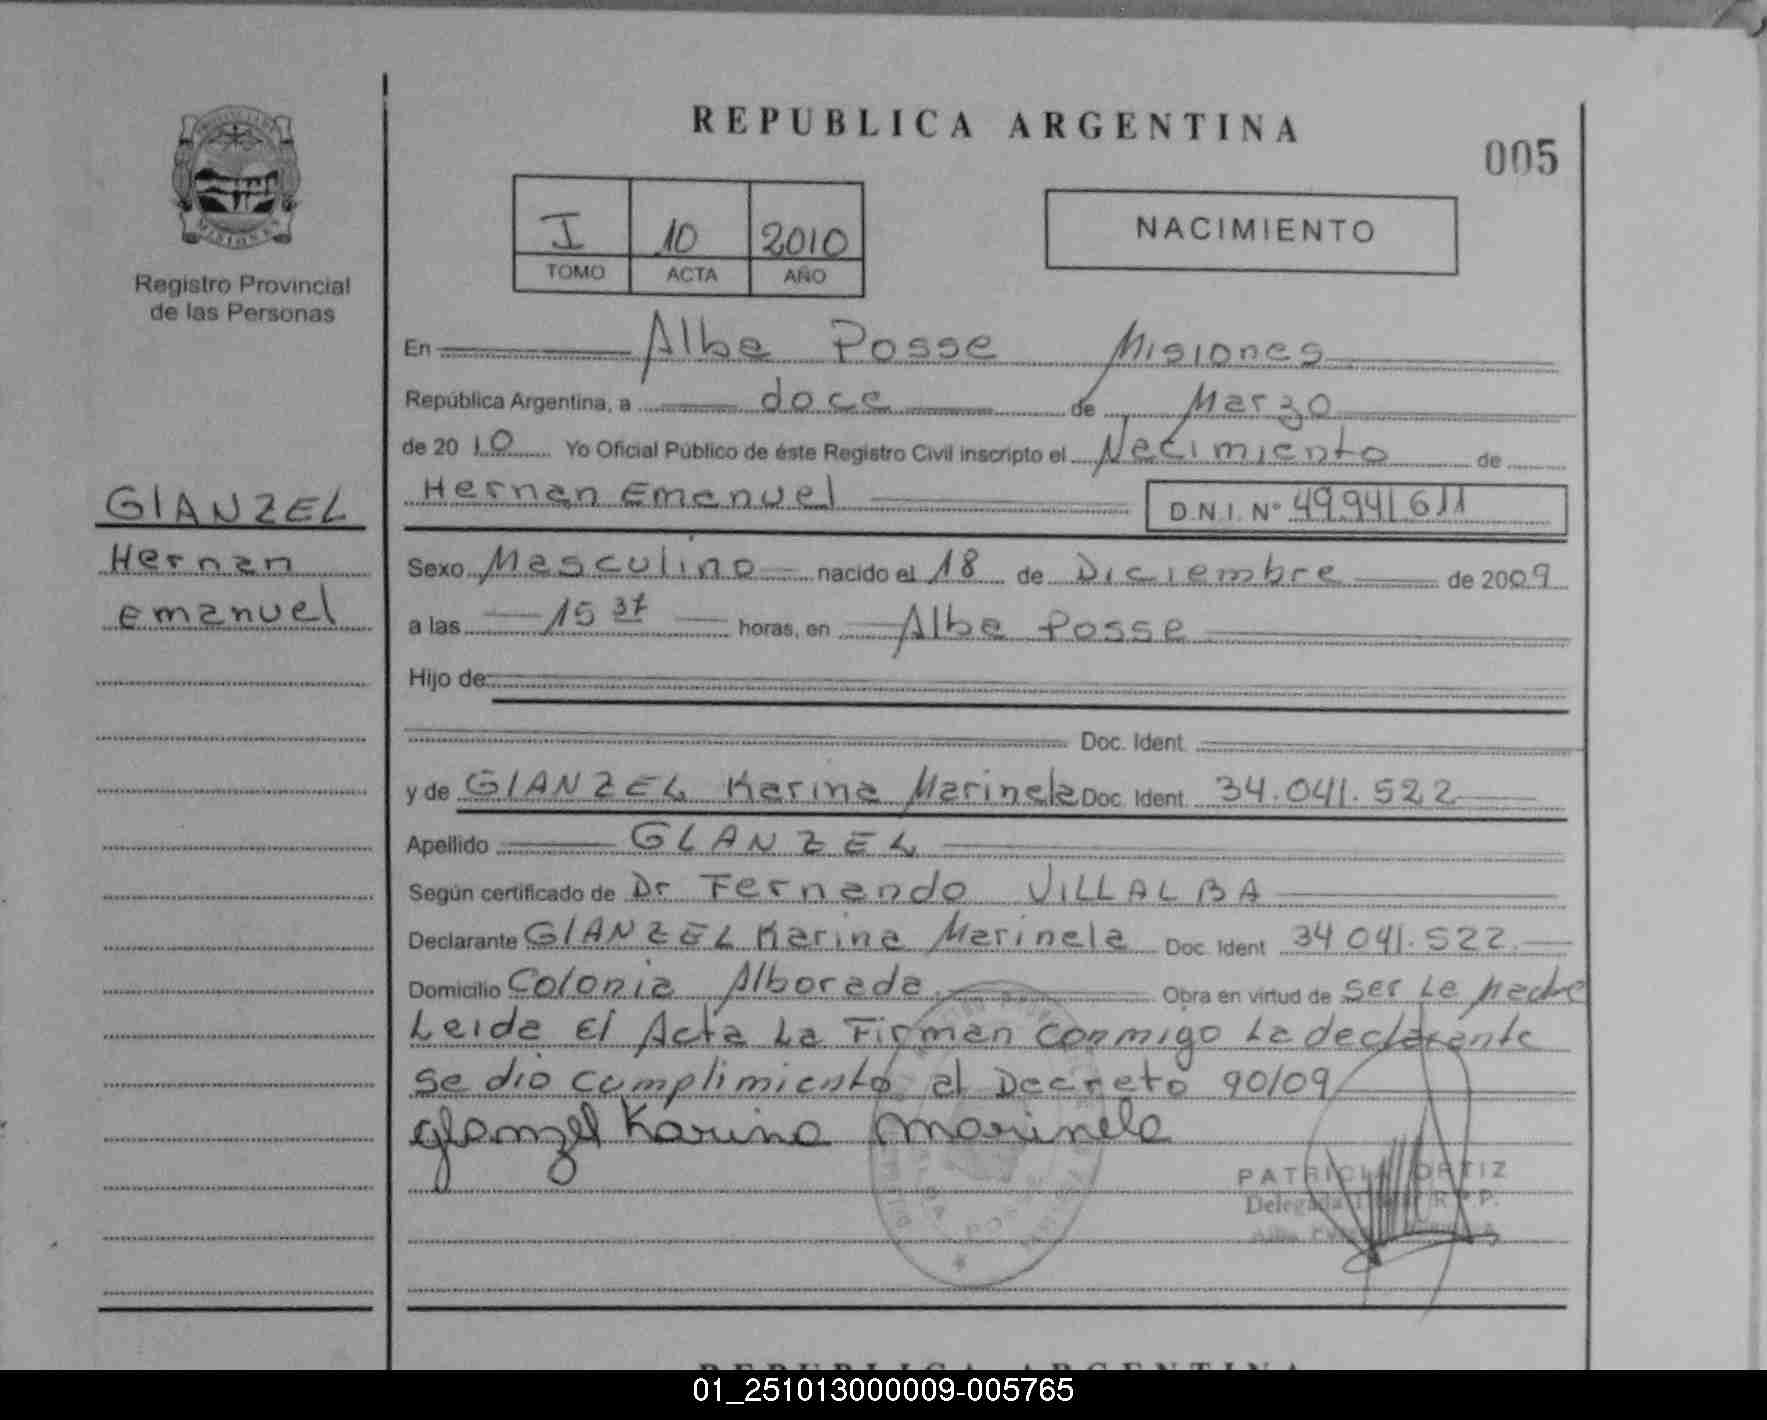 REPUBLICA ARGENTINA
005
I 10 2010
TOMO ACTA AÑO
NACIMIENTO
MISIONES
Registro Provincial
de las Personas
GLANZEL
Hernan
Emanuel
En Alba Posse Misiones
República Argentina, a doce de Marzo
de 2010 Yo Oficial Público de éste Registro Civil inscripto el Nacimiento de
Hernan Emanuel D.N.I. Nº 49.941.611
Sexo Masculino nacido el 18 de Diciembre de 2009
a las 15 37 horas, en Alba Posse
Hijo de:
Doc. Ident.
y de GLANZEL Karina Marinela Doc. Ident. 34.041.522
Apellido GLANZEL
Según certificado de Dr Fernando VILLALBA
Declarante GLANZEL Karina Marinela Doc. Ident 34 041.522.
Domicilio Colonia Alborada Obra en virtud de ser La Madre
Leida El Acta La Firman conmigo La declarante
se dio cumplimiento al Decreto 90/09
Glanzel Karina Marinela
PATRICIA ORTIZ
REPUBLICA ARGENTINA
01_251013000009-005765